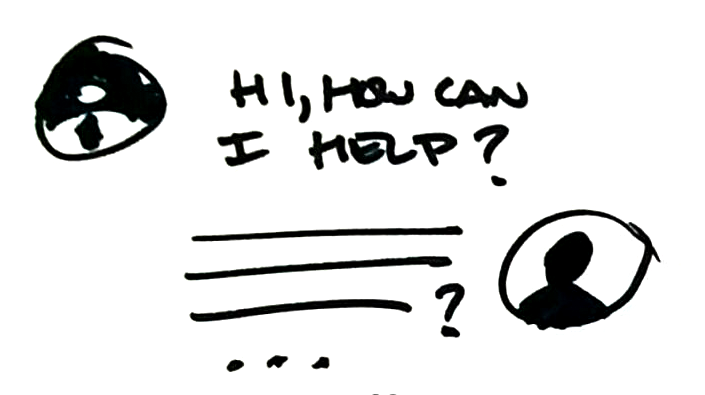 HI, HOW CAN
I HELP?
?
...